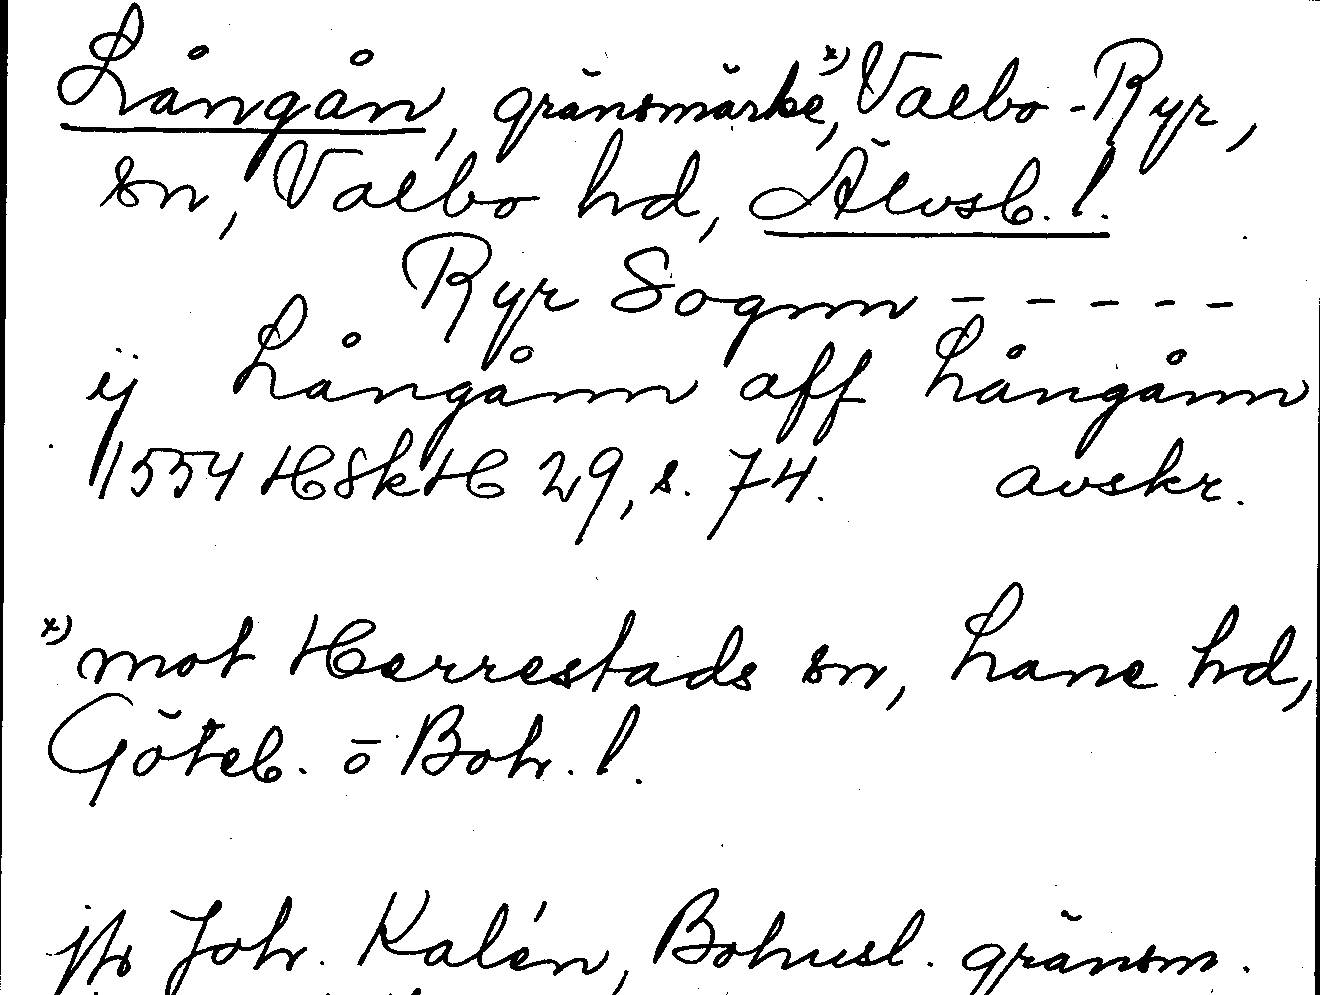 Långån, gränsmärke,*) Valbo-Ryr,
sn, Valbo hd, Älvsb. l.
Ryr Sognn - - - - -
ij Långånn aff Långånn
1554 HSkH 29, s. 74. avskr.
*) mot Herrestads sn, Lane hd,
Göteb. o Boh. l.
jfr Joh. Kalén, Bohusl. gränsm.